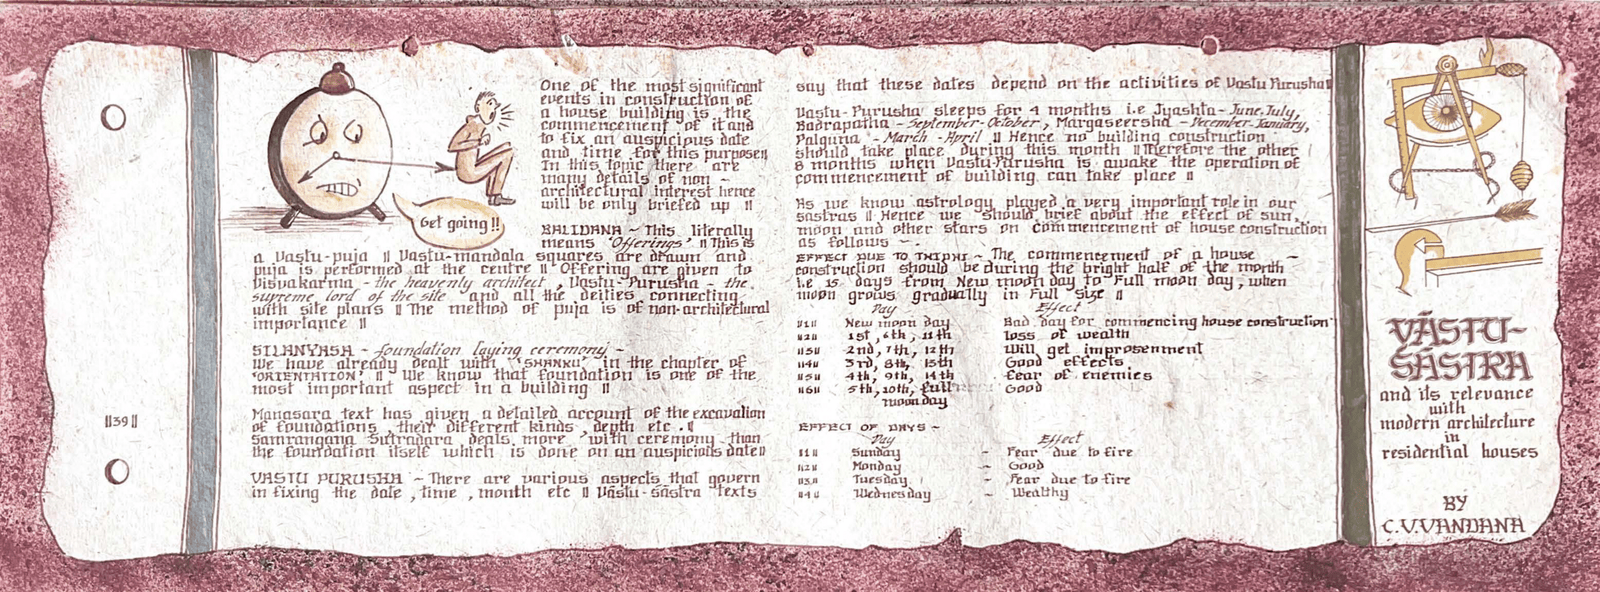 Get going !!
One of the most significant
events in construction of
a house building is the
commencement of it and
to fix an auspicious date
and time for this purpose॥
In this topic there are
many details of non -
architectural interest hence
will be only briefed up ॥
BALIDANA ~ This literally
means 'Offerings' ॥ This is
a Vastu-puja ॥ Vastu-mandala squares are drawn and
puja is performed at the centre ॥ Offering are given to
Visvakarma - the heavenly architect, Vastu-Purusha - the
supreme lord of the site and all the deities connecting
with site plans ॥ The method of puja is of non-architectural
importance ॥
SILANYASA ~ foundation laying ceremony ~
We have already dealt with 'SHANKU' in the chapter of
'ORIENTATION' ॥ We know that foundation is one of the
most important aspect in a building ॥
Manasara text has given a detailed account of the excavation
of foundations, their different kinds, depth etc. ॥
Samrangana Sutradara deals more with ceremony than
the foundation itself which is done on an auspicious date॥
VASTU PURUSHA ~ There are various aspects that govern
in fixing the date, time, month etc ॥ Vāstu-Sāstra texts
॥39॥
say that these dates depend on the activities of Vastu Purusha॥
Vastu-Purusha sleeps for 4 months i.e Jyashta - June, July,
Badrapatha - September-October, Margaseersha - December-January,
Palguna - March - April ॥ Hence no building construction
should take place during this month ॥ Therefore the other
8 months when Vastu-Purusha is awake the operation of
commencement of building can take place ॥
As we know astrology played a very important role in our
sastras ॥ Hence we should brief about the effect of sun,
moon and other stars on commencement of house construction
as follows ~.
EFFECT DUE TO THIDHI ~ The commencement of a house ~
construction should be during the bright half of the month
i.e 15 days from New moon day to Full moon day, when
moon grows gradually in Full Size ॥
Day Effect
॥1॥ New moon day Bad day for commencing house construction
॥2॥ 1st, 6th, 11th loss of wealth
॥3॥ 2nd, 7th, 12th Will get improsenment
॥4॥ 3rd, 8th, 13th Good effects
॥5॥ 4th, 9th, 14th fear of enemies
॥6॥ 5th, 10th, full Good
moon day
EFFECT OF DAYS ~
Day Effect
॥1॥ Sunday ~ Fear due to fire
॥2॥ Monday ~ Good
॥3॥ Tuesday ~ Fear due to fire
॥4॥ Wednesday ~ Wealthy
VĀSTU-
SĀSTRA
and its relevance
with
modern architecture
in
residential houses
BY
C.V.VANDANA